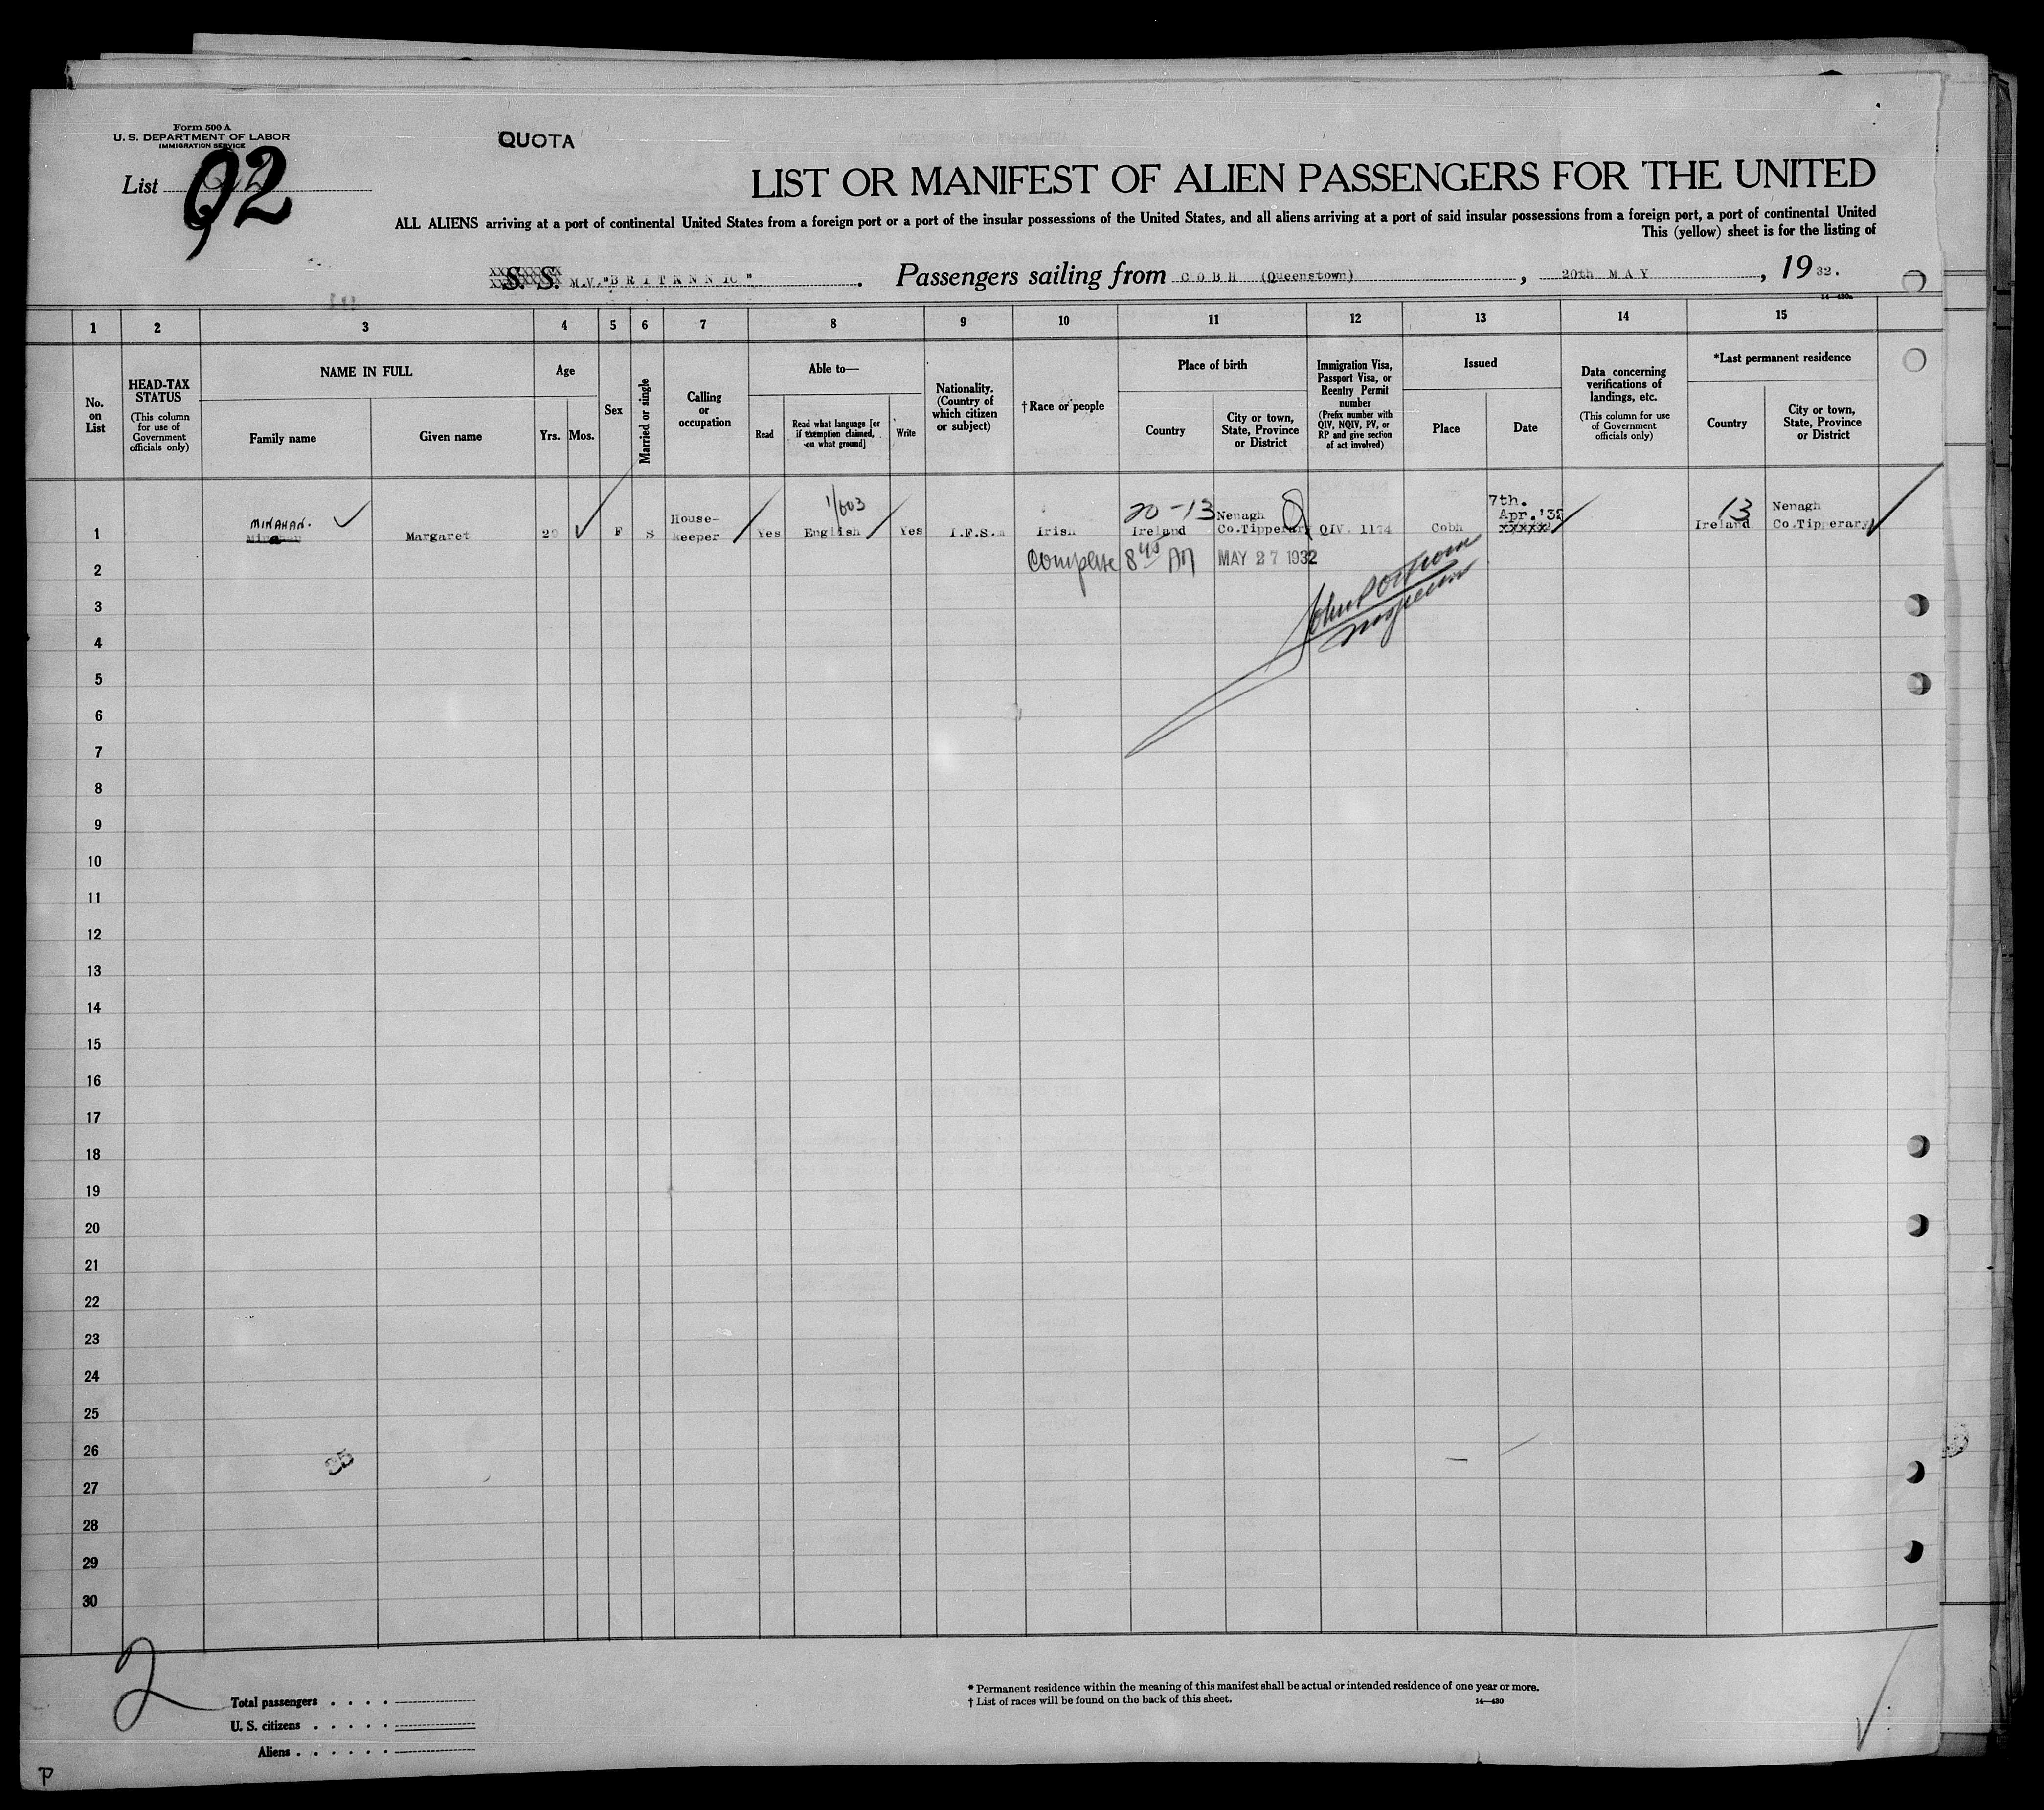 Form 500 A
U. S. DEPARTMENT OF LABOR
IMMIGRATION SERVICE
QUOTA
List 92
LIST OR MANIFEST OF ALIEN PASSENGERS FOR THE UNITED
ALL ALIENS arriving at a port of continental United States from a foreign port or a port of the insular possessions of the United States, and all aliens arriving at a port of said insular possessions from a foreign port, a port of continental United
This (yellow) sheet is for the listing of
S. S. M.V."BRITNNNIC" . Passengers sailing from COBH (Queenstown) , 20th MAY , 19 32.
1 2 3 4 5 6 7 8 9 10 11 12 13 14 15
No. on List
HEAD-TAX STATUS
(This column for use of Government officials only)
NAME IN FULL
Family name
Given name
Age
Yrs. Mos.
Sex
Married or single
Calling or occupation
Able to—
Read
Read what language [or if exemption claimed, on what ground]
Write
Nationality. (Country of which citizen or subject)
†Race or people
Place of birth
Country
City or town, State, Province or District
Immigration Visa, Passport Visa, or Reentry Permit number
(Prefix number with QIV, NQIV, PV, or RP and give section of act involved)
Issued
Place
Date
Data concerning verifications of landings, etc.
(This column for use of Government officials only)
*Last permanent residence
Country
City or town, State, Province or District
1/603
20-13
13
7th.
MINAHAN.
House-
Nenagh
Apr.'32
Nenagh
1 Margaret F S keeper Yes English Yes I.F.S. Irish Ireland Co.Tipperary QIV. 1174 Cobh xxxxx Ireland Co.Tipperary
2 Complete 8 45 AM MAY 27 1932
3
4
5
6
7
8
9
10
11
12
13
14
15
16
17
18
19
20
21
22
23
24
25
26
27
28
29
30
2
Total passengers
U. S. citizens
Aliens
* Permanent residence within the meaning of this manifest shall be actual or intended residence of one year or more.
† List of races will be found on the back of this sheet.
14—430
P